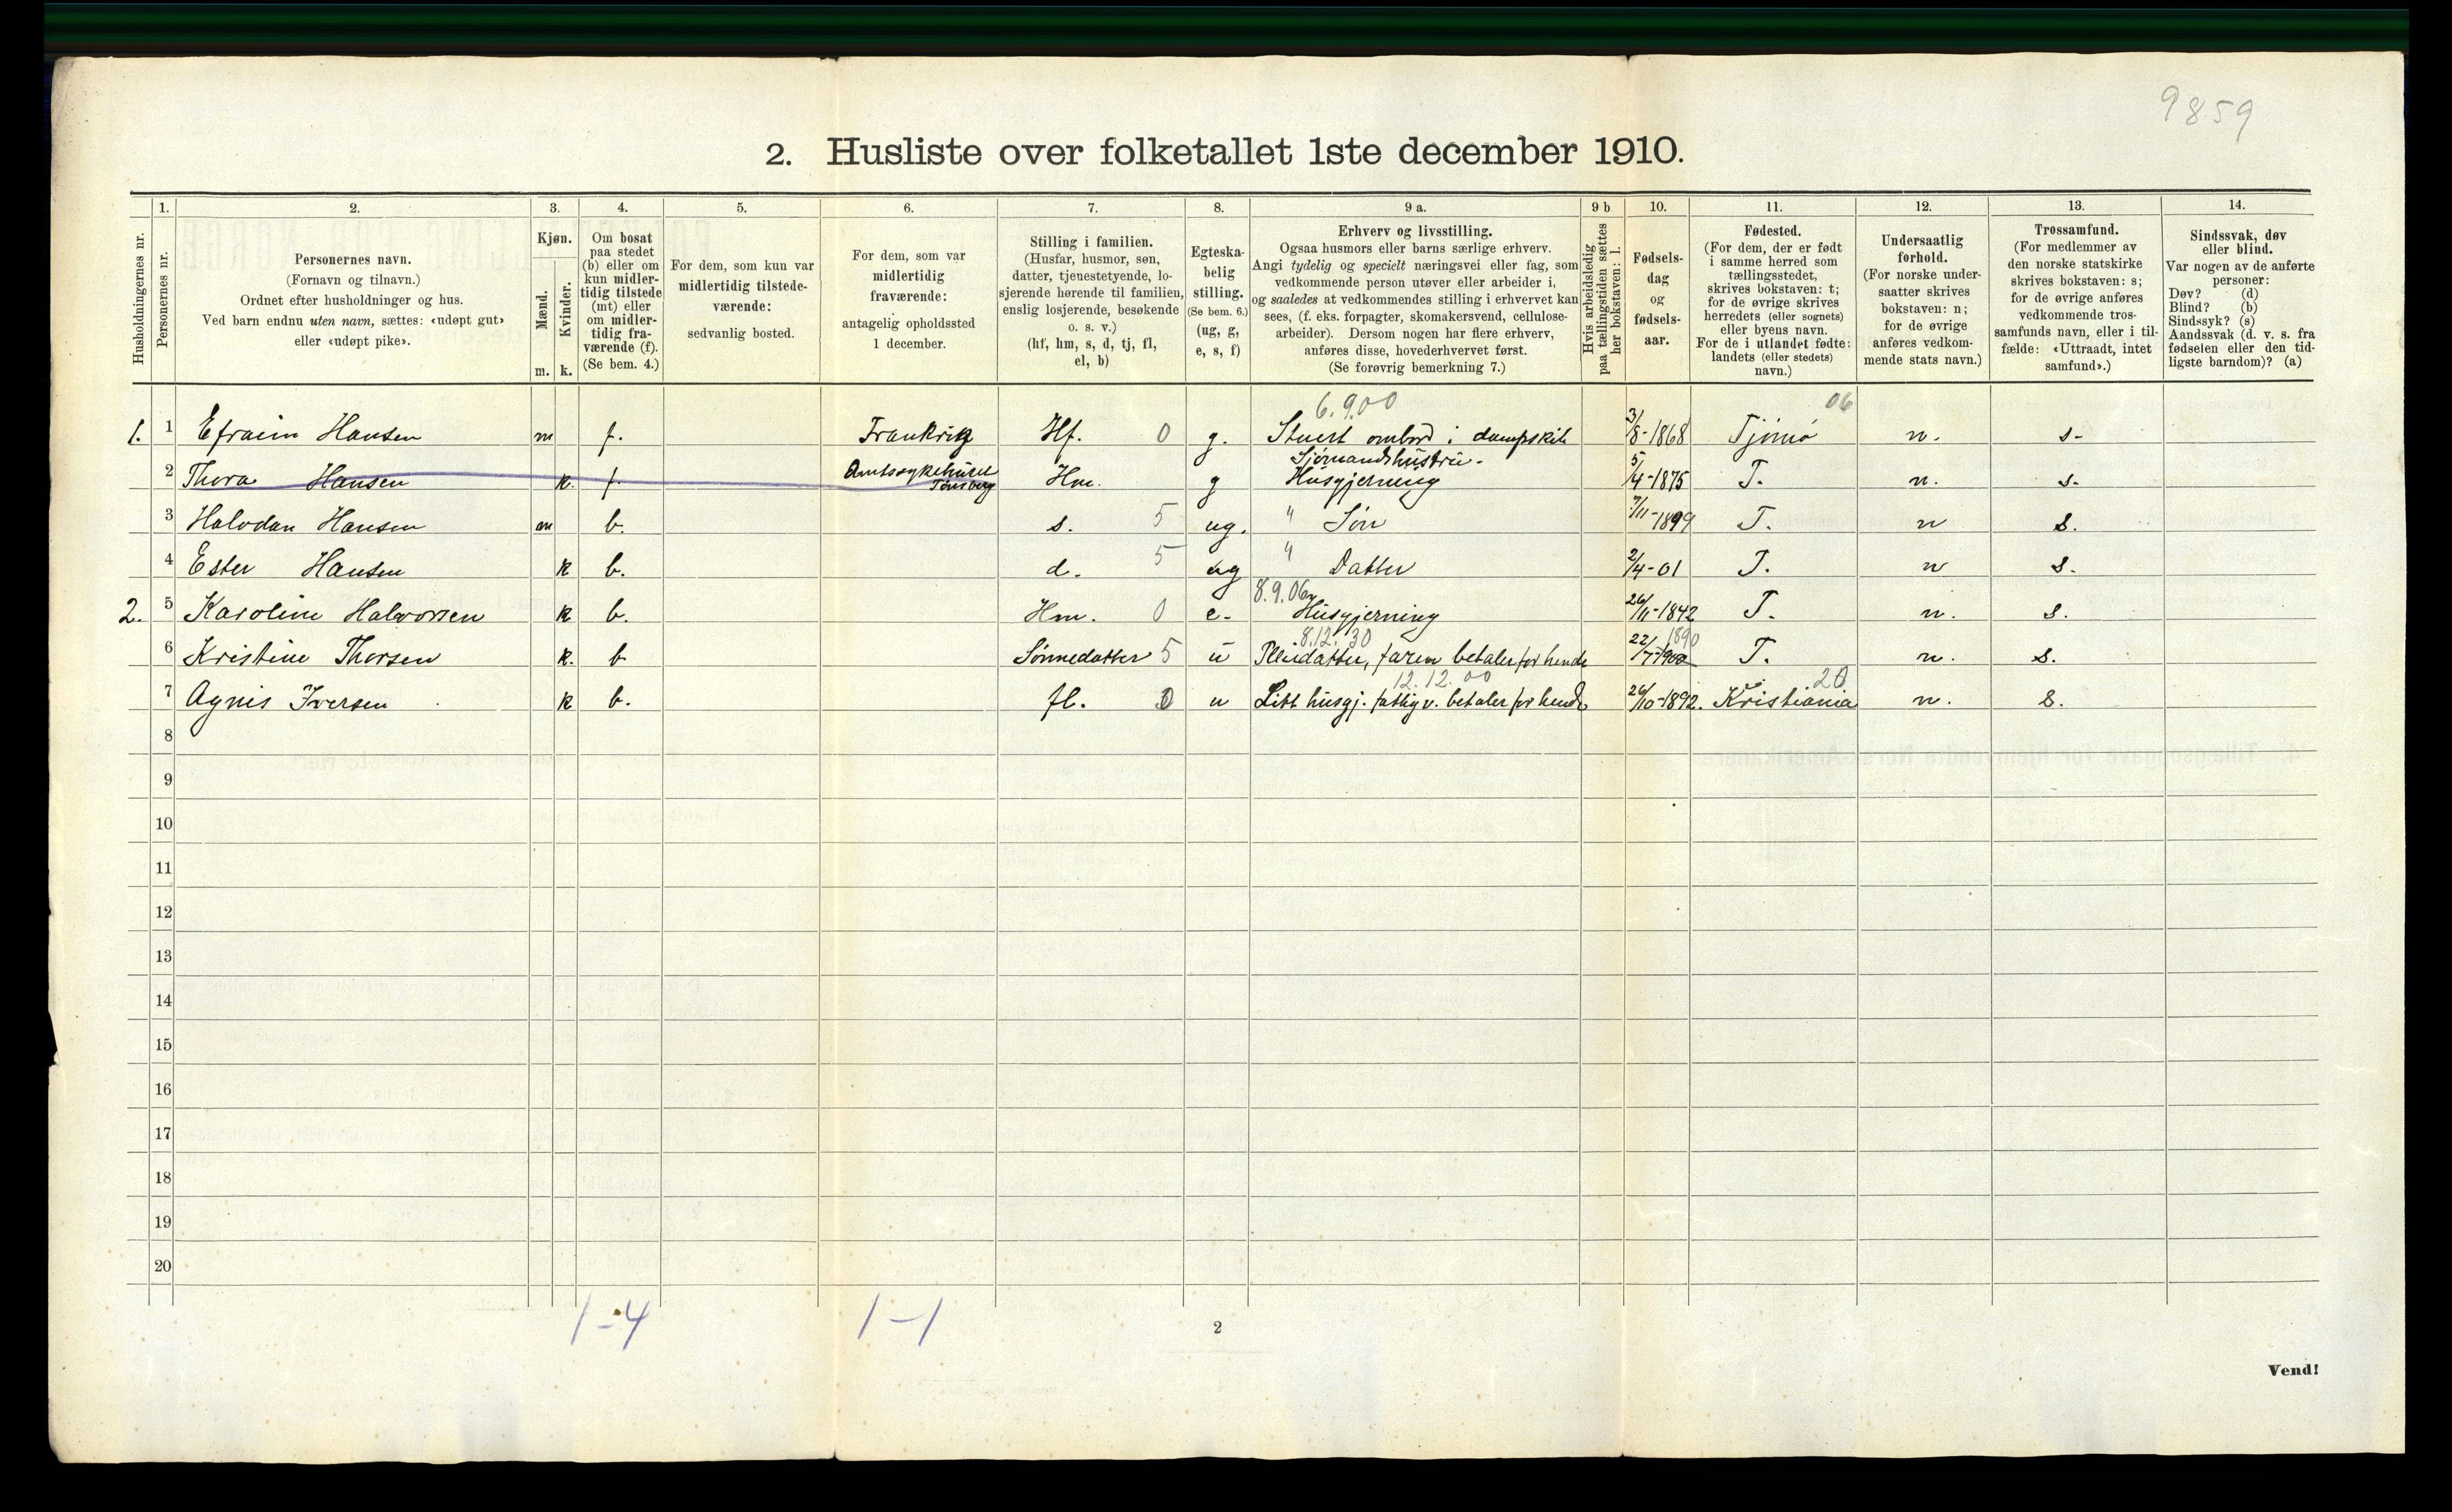 9859
2. Husliste over folketallet 1ste december 1910.
Husholdningernes nr.
1.
Personernes nr.
2.
Personernes navn.
(Fornavn og tilnavn.)
Ordnet efter husholdninger og hus.
Ved barn endnu uten navn, sættes: «udøpt gut»
eller «udøpt pike».
3.
Kjøn.
Mænd.
Kvinder.
m. k.
4.
Om bosat
paa stedet
(b) eller om
kun midler-
tidig tilstede
(mt) eller
om midler-
tidig fra-
værende (f).
(Se bem. 4.)
5.
For dem, som kun var
midlertidig tilstede-
værende:
sedvanlig bosted.
6.
For dem, som var
midlertidig
fraværende:
antagelig opholdssted
1 december.
7.
Stilling i familien.
(Husfar, husmor, søn,
datter, tjenestetyende, lo-
sjerende hørende til familien,
enslig losjerende, besøkende
o. s. v.)
(hf, hm, s, d, tj, fl,
el, b)
8.
Egteska-
belig
stilling.
(Se bem. 6.)
(ug, g,
e, s, f)
9 a.
Erhverv og livsstilling.
Ogsaa husmors eller barns særlige erhverv.
Angi tydelig og specielt næringsvei eller fag, som
vedkommende person utøver eller arbeider i,
og saaledes at vedkommendes stilling i erhvervet kan
sees, (f. eks. forpagter, skomakersvend, cellulose-
arbeider). Dersom nogen har flere erhverv,
anføres disse, hovederhvervet først.
(Se forøvrig bemerkning 7.)
9 b
Hvis arbeidsledig
paa tællingstiden sættes
her bokstaven: l.
10.
Fødsels-
dag
og
fødsels-
aar.
11.
Fødested.
(For dem, der er født
i samme herred som
tællingsstedet,
skrives bokstaven: t;
for de øvrige skrives
herredets (eller sognets)
eller byens navn.
For de i utlandet fødte:
landets (eller stedets)
navn.)
12.
Undersaatlig
forhold.
(For norske under-
saatter skrives
bokstaven: n;
for de øvrige
anføres vedkom-
mende stats navn.)
13.
Trossamfund.
(For medlemmer av
den norske statskirke
skrives bokstaven: s;
for de øvrige anføres
vedkommende tros-
samfunds navn, eller i til-
fælde: «Uttraadt, intet
samfund».)
14.
Sindssvak, døv
eller blind.
Var nogen av de anførte
personer:
Døv? (d)
Blind? (b)
Sindssyk? (s)
Aandssvak (d. v. s. fra
fødselen eller den tid-
ligste barndom)? (a)
6.9.00 06
1. 1 Efraim Hansen m f. Frankrig Hf. 0 g. Stuert ombord i dampskib 3/8-1868 Tjømø n. s-
Sjømandshustru-
2 Thora Hansen k. f. Amtssykehuset Tønsberg Hm. g Husgjerning 5/4-1875 T. n. s-
3 Halvdan Hansen m b. s. 5 ug. " Søn 7/11-1899 T. n s.
4 Ester Hansen k b. d. 5 ug " Datter 2/4-01 T. n s.
8.9.06
2. 5 Karoline Halvorsen k b. Hm. 0 e. Husgjerning 26/11-1842 T. n. s.
8.12.30 1890
6 Kristine Thorsen k. b Sønnedatter 5 u Pleiedatter, faren betaler for hende 22/7-1900 T. n. s.
12.12.00 20
7 Agnis Iversen k b. fl. 0 u Litt husgj. fattigv. betaler for hende 26/10-1892. Kristiania n. s.
8
9
10
11
12
13
14
15
16
17
18
19
20
1-4 1-1
2
Vend!